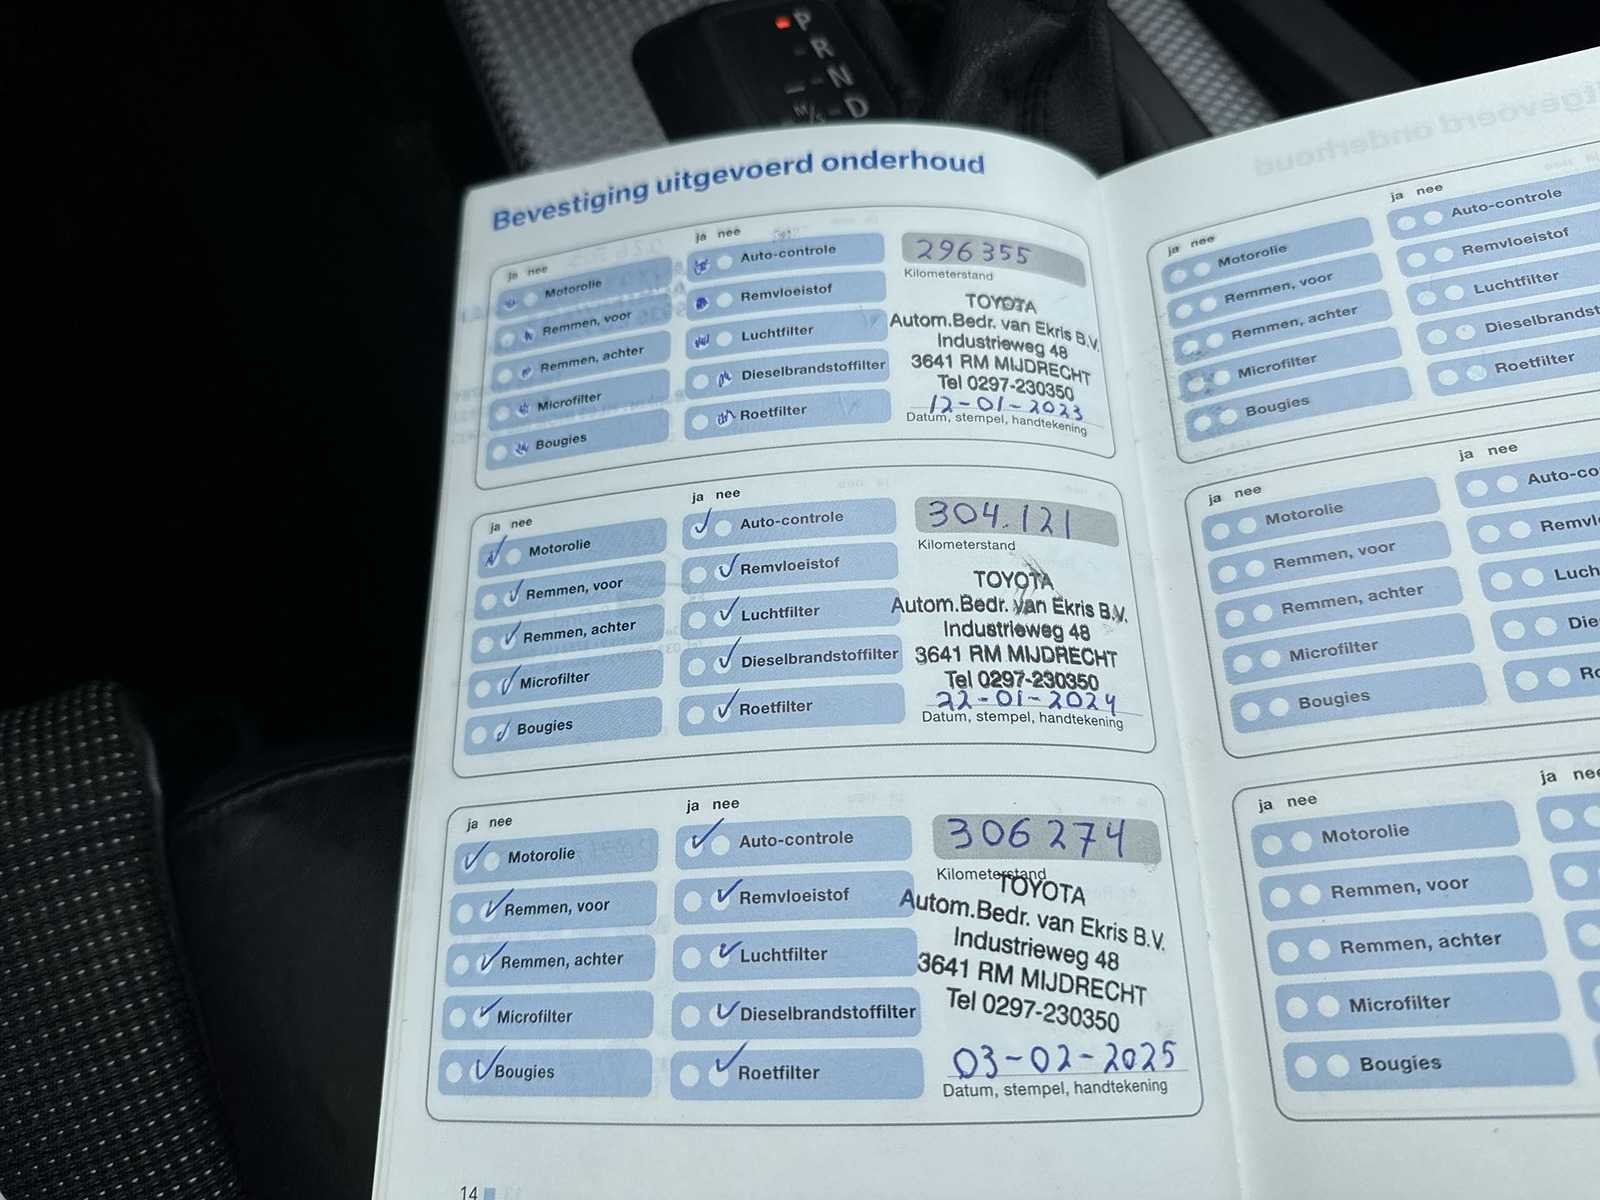 P
R
N
D
Bevestiging uitgevoerd onderhoud
ja nee
Motorolie
Remmen, voor
Remmen, achter
Microfilter
Bougies
ja nee
Auto-controle
Remvloeistof
Luchtfilter
Dieselbrandstoffilter
Roetfilter
296355
Kilometerstand
TOYOTA
Autom.Bedr. van Ekris B.V.
Industrieweg 48
3641 RM MIJDRECHT
Tel 0297-230350
12-01-2023
Datum, stempel, handtekening
ja nee
Motorolie
Remmen, voor
Remmen, achter
Microfilter
Bougies
ja nee
Auto-controle
Remvloeistof
Luchtfilter
Dieselbrandstoffilter
Roetfilter
304.121
Kilometerstand
TOYOTA
Autom.Bedr. van Ekris B.V.
Industrieweg 48
3641 RM MIJDRECHT
Tel 0297-230350
22-01-2024
Datum, stempel, handtekening
ja nee
Motorolie
Remmen, voor
Remmen, achter
Microfilter
Bougies
ja nee
Auto-controle
Remvloeistof
Luchtfilter
Dieselbrandstoffilter
Roetfilter
306274
Kilometerstand
TOYOTA
Autom.Bedr. van Ekris B.V.
Industrieweg 48
3641 RM MIJDRECHT
Tel 0297-230350
03-02-2025
Datum, stempel, handtekening
14
ja nee
Motorolie
Remmen, voor
Remmen, achter
Microfilter
Bougies
ja nee
Auto-controle
Remvloeistof
Luchtfilter
Dieselbrandst
Roetfilter
ja nee
Motorolie
Remmen, voor
Remmen, achter
Microfilter
Bougies
ja nee
Auto-co
Remvl
Luch
Die
Ro
ja nee
Motorolie
Remmen, voor
Remmen, achter
Microfilter
Bougies
ja nee